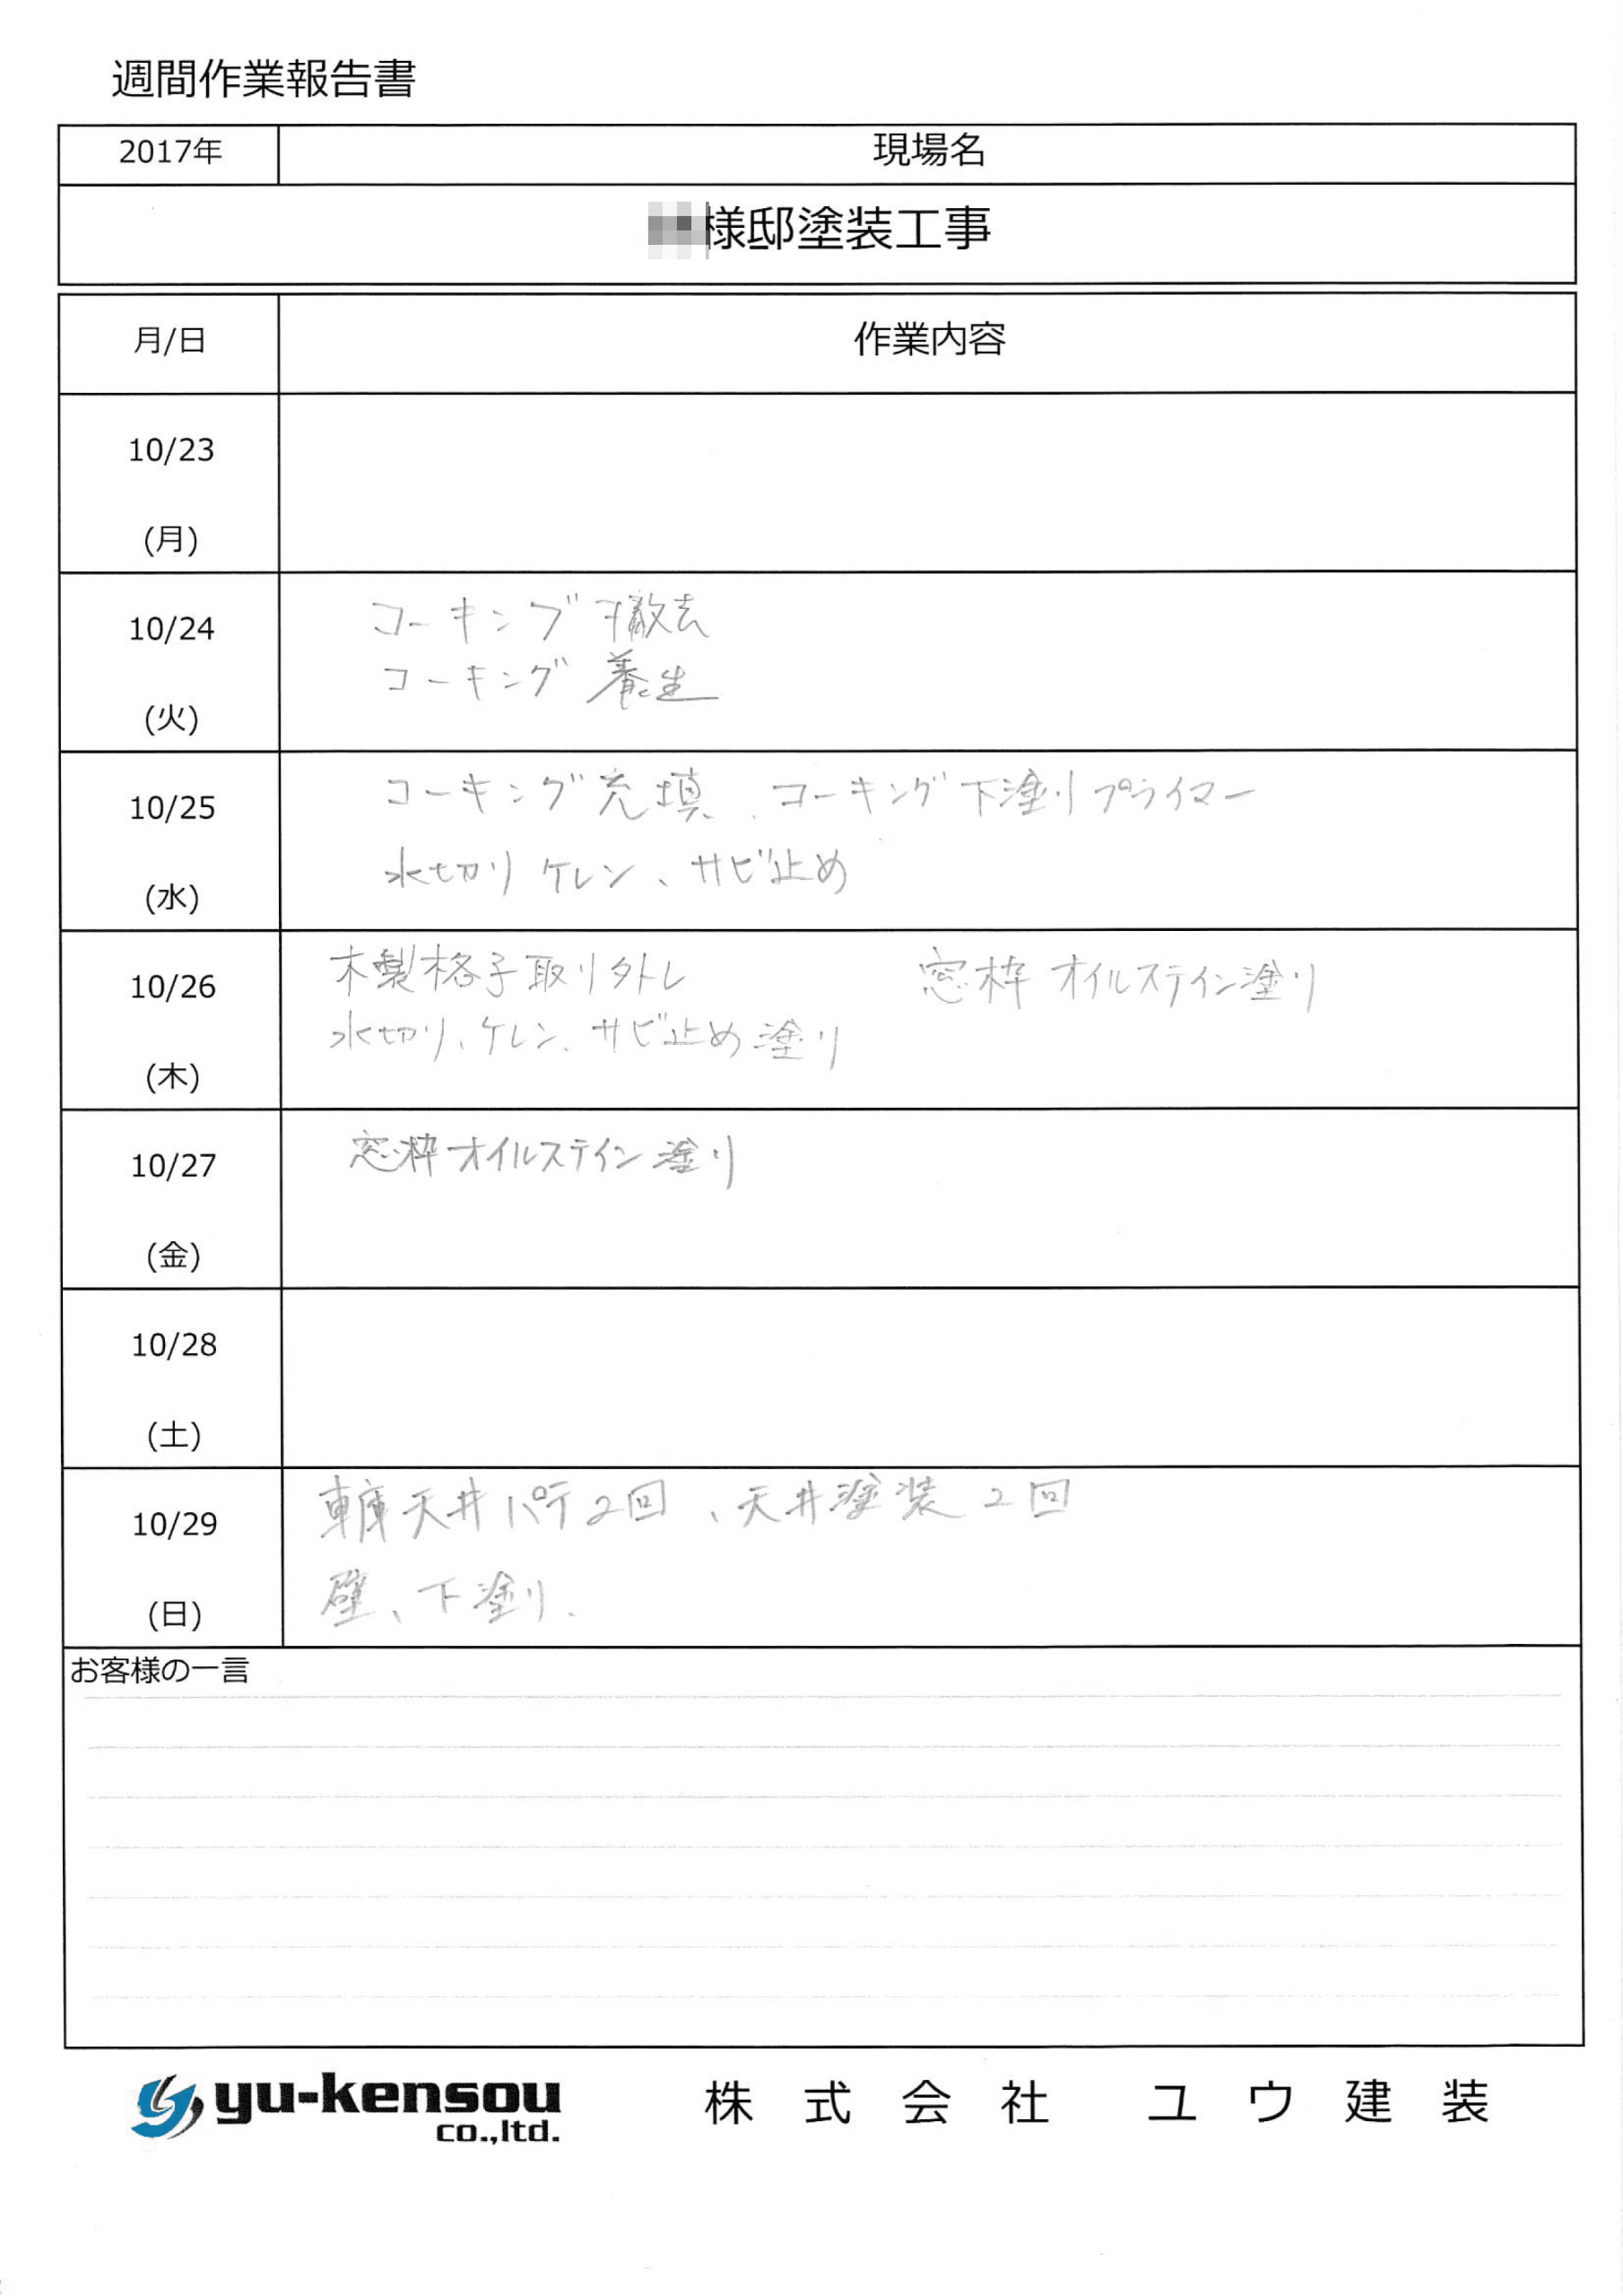 週間作業報告書
2017年 現場名
様邸塗装工事
月/日 作業内容
10/23
(月)
10/24
(火)
コーキング撤去
コーキング 養生
10/25
(水)
コーキング充填、コーキング下塗りプライマー
水切りケレン、サビ止め
10/26
(木)
木製格子取り外し 窓枠 オイルステイン塗り
水切り、ケレン、サビ止め塗り
10/27
(金)
窓枠オイルステイン塗り
10/28
(土)
10/29
(日)
車庫天井パテ2回、天井塗装2回
壁、下塗り.
お客様の一言
yu-kensou
co.,ltd.
株式会社 ユウ建装